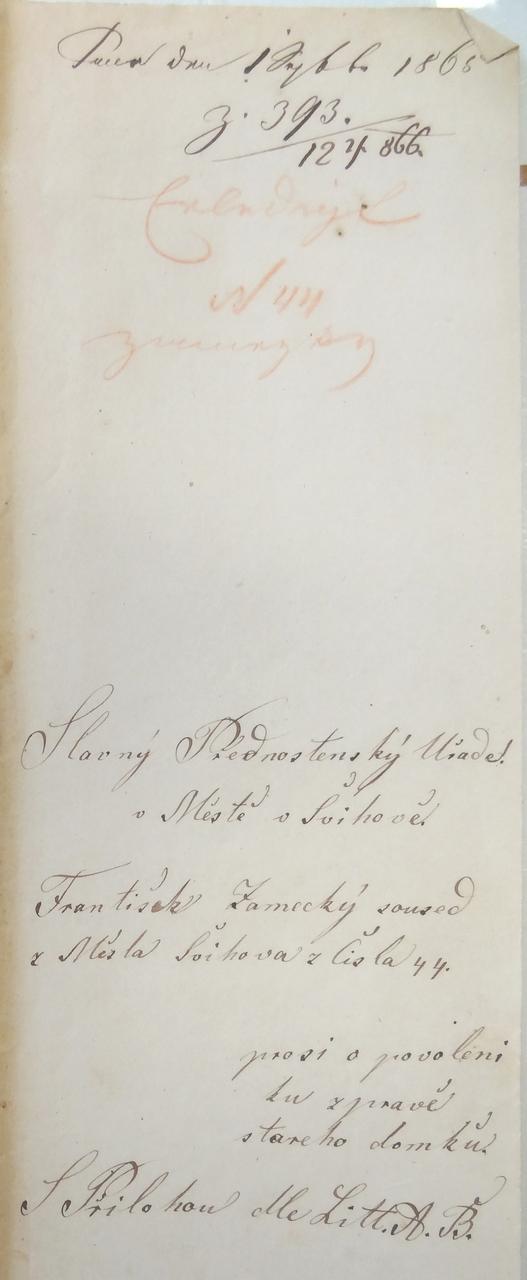 den 1 Septb. 1865
z. 393.
12 866.
Erledigt
N 44
Slavný Přednostenský Uřade!
v Městě v Švihově!
František Zamecký soused
z Města Švihova z Čisla 44.
prosi o povoleni
ku zpravě
stareho domků.
S Přilohou dle Litt. A. B.